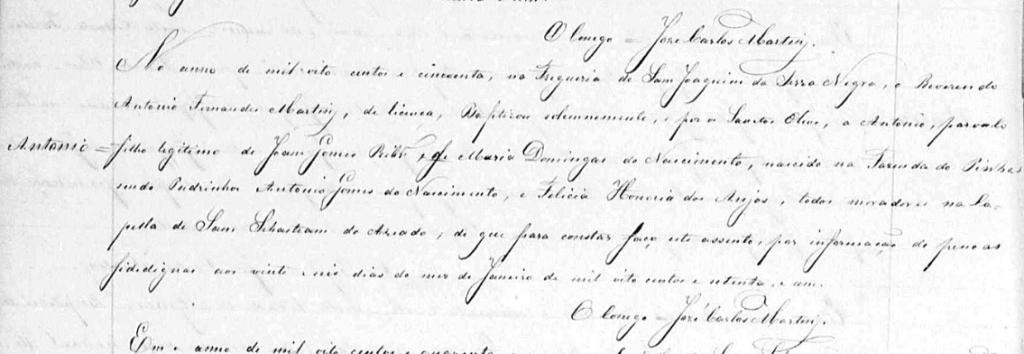 O Conego = José Carlos Martins.
No anno de mil oito centos e cincoenta, na Freguesia de Sam Joaquim da Serra Negra, o Reverendo
Antonio Fernandes Martins, de licença, Baptizou solemnemente, e poz os Santos Oleos, a Antonio, parvulo
Antonio = filho legitimo de Joam Gomes Ribrº, e de Maria Domingas do Nascimento, nascido na Fazenda do Pinhei
sendo Padrinhos Antonio Gomes do Nascimento, e Felicia Honoria dos Anjos, todos moradores na Ca-
pella de Sam Sebastiam do Areado, de que para constar faço este assento, por informação de pessoas
fidedignas aos vinte seis dias do mez de Janeiro de mil oito centos e setenta, e um.
O Conego = José Carlos Martins.
Em o anno de mil oito centos e quarenta